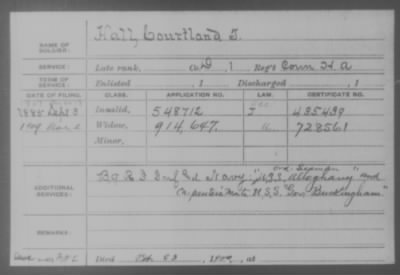 NAME OF SOLDIER: Hall, Courtland T.
SERVICE: Late rank, Co. D, 1 Reg't Conn H. A
TERM OF SERVICE: Enlisted , 1 Discharged , 1
DATE OF FILING. CLASS. APPLICATION NO. LAW. CERTIFICATE NO.
1885 Sept 3 Invalid, 548712 J 435439
Widow, 914.647. 728561
Minor,
ADDITIONAL SERVICES: Co. R. I. Inf and Navy: "U.S.S. Alleghany" and
Carpenters Mate U.S.S. "Gov. Buckingham"
REMARKS:
Died